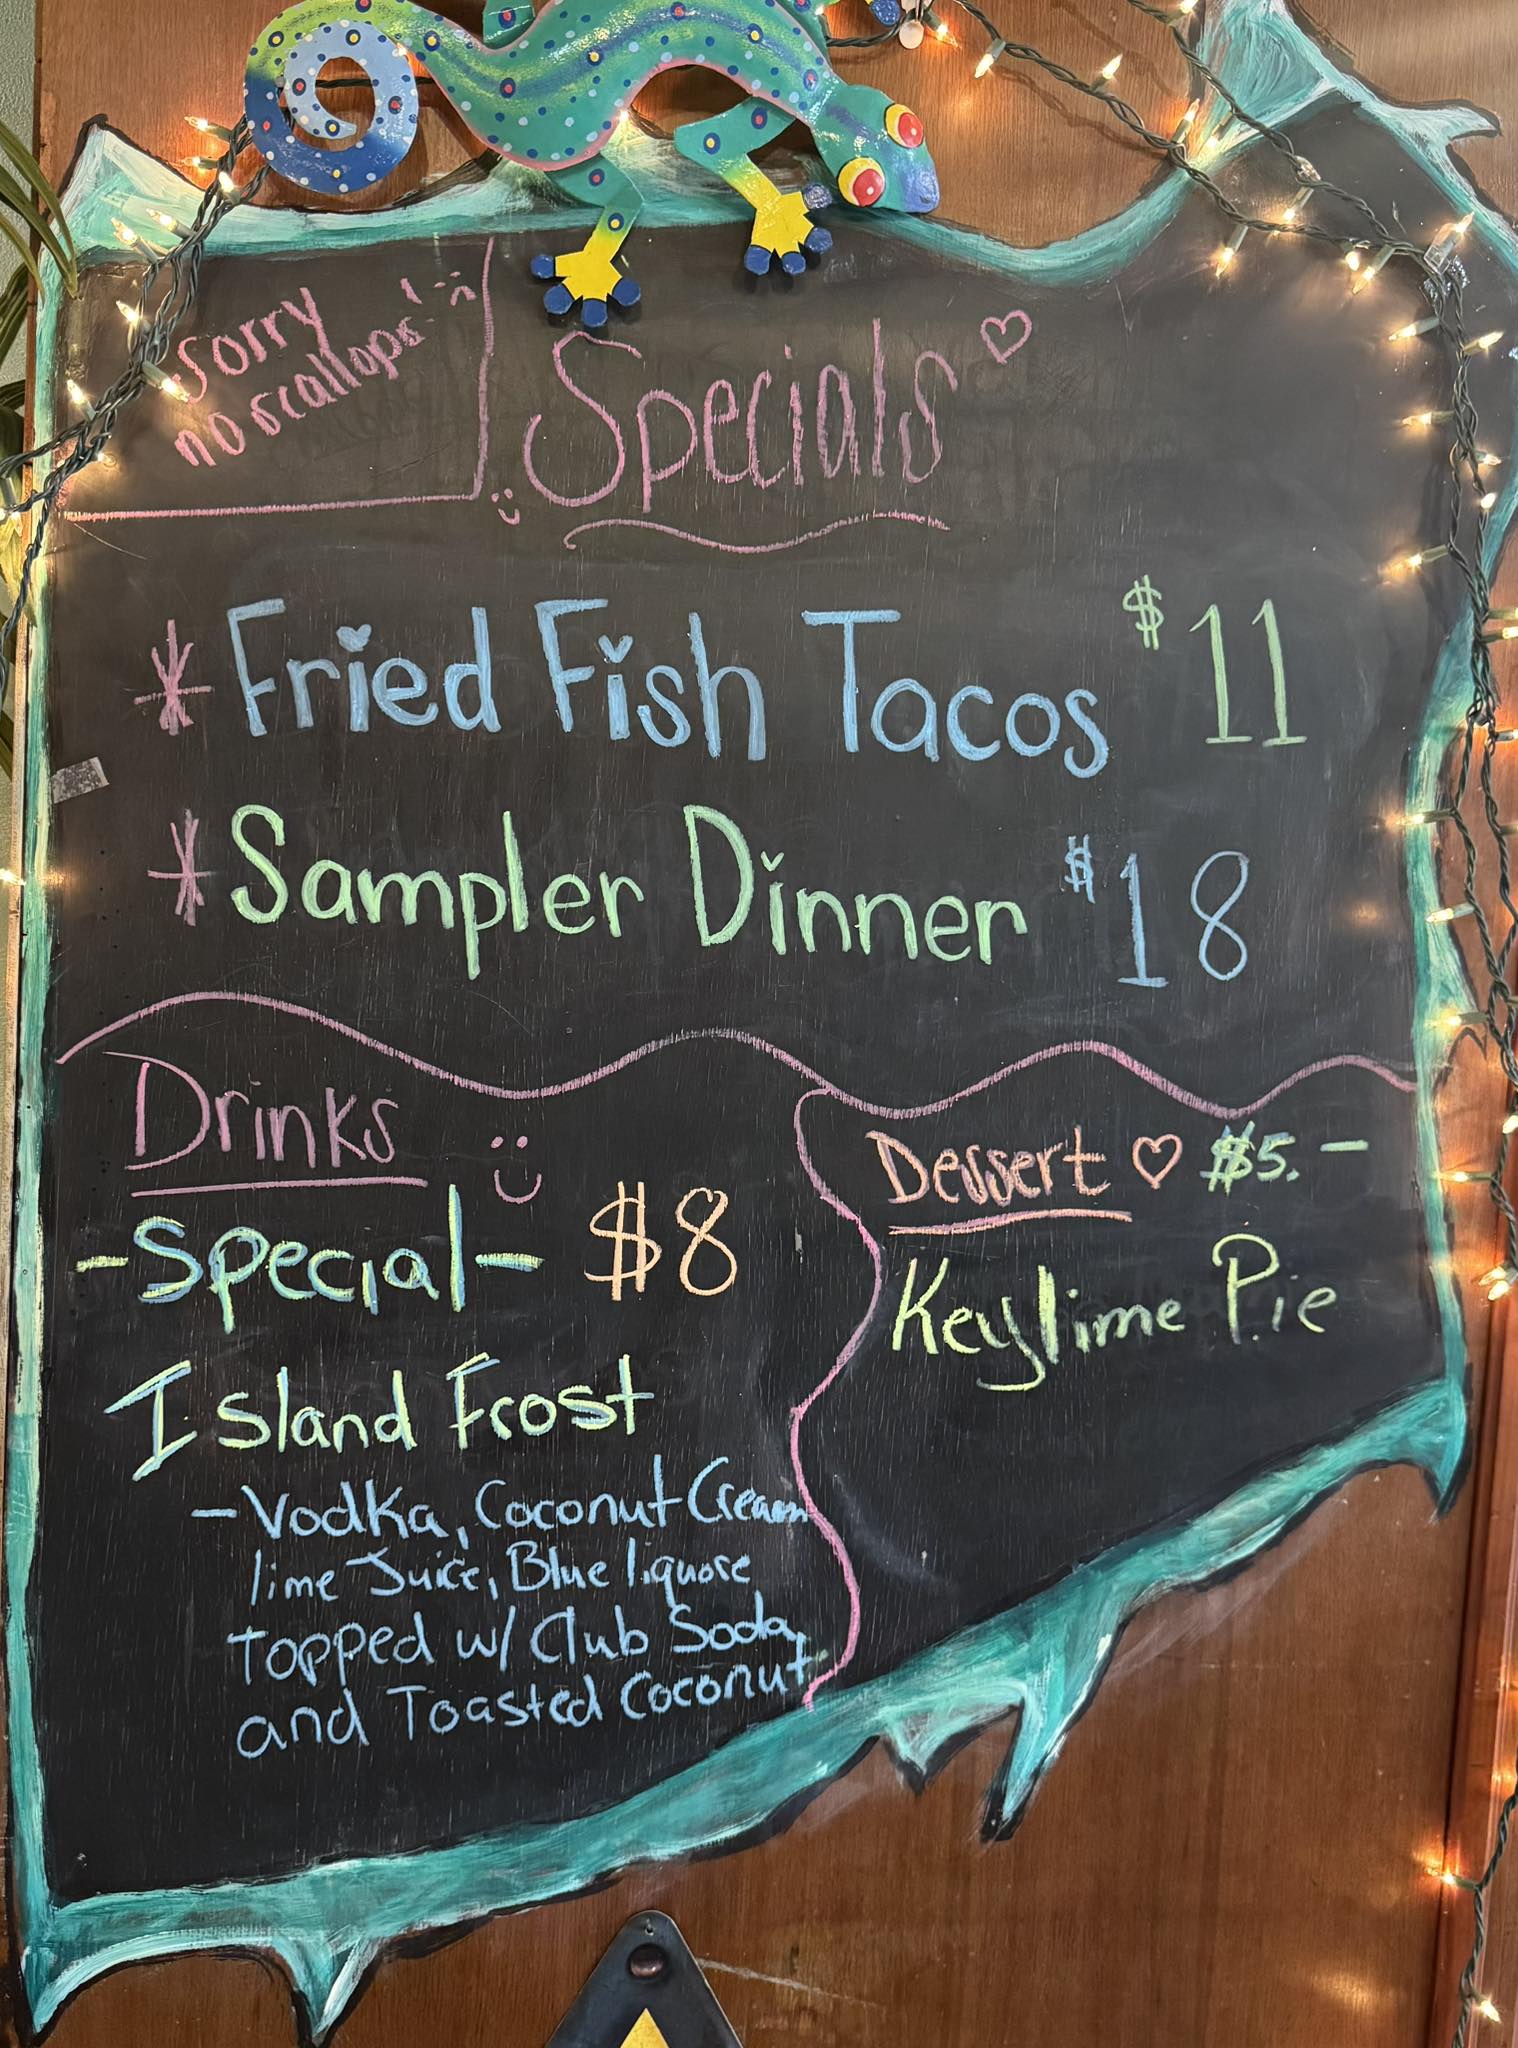 Sorry
no scallops
Specials
* Fried Fish Tacos $11
* Sampler Dinner $18
Drinks
-Special- $8
Island Frost
- Vodka, Coconut Cream
lime Juice, Blue liquore
topped w/ Club Soda,
and Toasted Coconut
Dessert $5.-
Keylime Pie